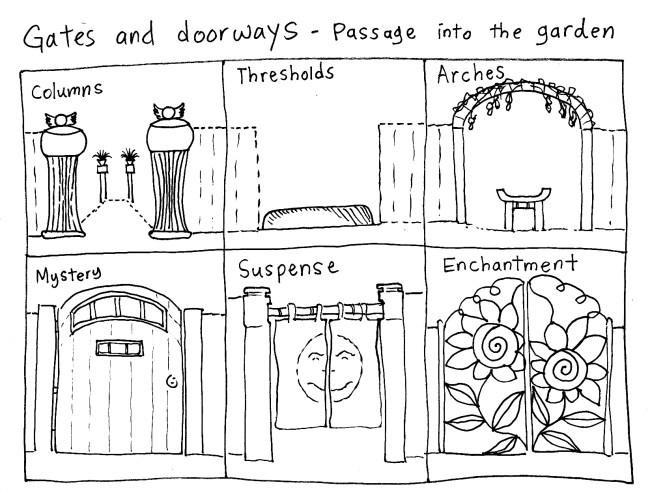 Gates and doorways - Passage into the garden
Columns
Thresholds
Arches
Mystery
Suspense
Enchantment